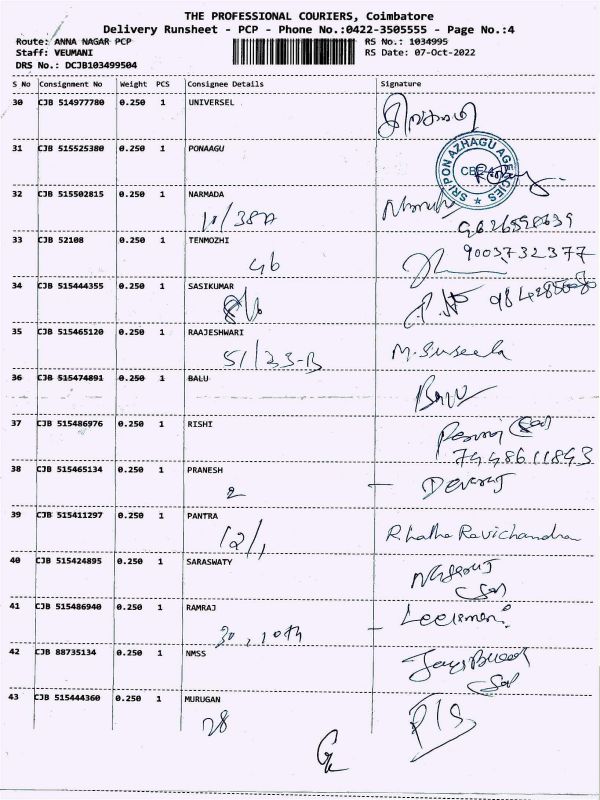 THE PROFESSIONAL COURIERS, Coimbatore
Delivery Runsheet - PCP - Phone No.:0422-3505555 - Page No.:4
Route: ANNA NAGAR PCP RS No.: 1034995
Staff: VEUMANI RS Date: 07-Oct-2022
DRS No.: DCJB103499504
S No Consignment No Weight PCS Consignee Details Signature
30 CJB 514977780 0.250 1 UNIVERSEL
31 CJB 515525380 0.250 1 PONAAGU
SRI PON AZHAGU AGENCIES
32 CJB 515502815 0.250 1 NARMADA
33 CJB 52108 0.250 1 TENMOZHI 9003732377
46
34 CJB 515444355 0.250 1 SASIKUMAR
35 CJB 515465120 0.250 1 RAAJESHWARI M. Suseela
51/23-B
36 CJB 515474891 0.250 1 BALU
37 CJB 515486976 0.250 1 RISHI
7448611843
38 CJB 515465134 0.250 1 PRANESH
2 Devaraj
39 CJB 515411297 0.250 1 PANTRA
12/1 R. Latha Ravichandra
40 CJB 515424895 0.250 1 SARASWATY
41 CJB 515486940 0.250 1 RAMRAJ
30, 10th
42 CJB 88735134 0.250 1 NMSS
43 CJB 515444360 0.250 1 MURUGAN
28